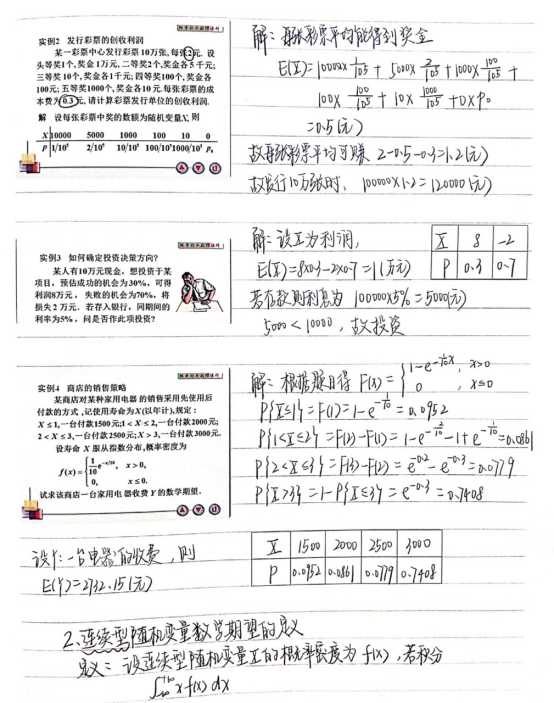 概率论与数理统计
实例2 发行彩票的创收利润
某一彩票中心发行彩票 10万张, 每张2元. 设
头等奖1个, 奖金 1万元, 二等奖2个,奖金各 5 千元;
三等奖 10个, 奖金各1千元; 四等奖100个, 奖金各
100元; 五等奖1000个, 奖金各10 元.每张彩票的成
本费为0.3元, 请计算彩票发行单位的创收利润.
解 设每张彩票中奖的数额为随机变量X, 则
X 10000 5000 1000 100 10 0
P 1/10⁵ 2/10⁵ 10/10⁵ 100/10⁵ 1000/10⁵ p₀
解: 每张彩票平均能得到奖金
E(X)=10000×1/10⁵ + 5000×2/10⁵ + 1000×100/10⁵ +
100×100/10⁵ + 10×1000/10⁵ + 0×P₀
=0.5(元)
故每张彩票平均可赚 2-0.5-0.3=1.2(元)
故发行10万张时, 100000×1.2=120000(元)
概率论与数理统计
实例3 如何确定投资决策方向?
某人有10万元现金, 想投资于某
项目, 预估成功的机会为30%, 可得
利润8万元, 失败的机会为70%, 将
损失 2 万元. 若存入银行, 同期间的
利率为5%, 问是否作此项投资?
解: 设X为利润,
E(X)=8×0.3-2×0.7=1(万元)
X 8 -2
P 0.3 0.7
若存款则利息为 100000×5%=5000(元)
5000<10000, 故投资
概率论与数理统计
实例4 商店的销售策略
某商店对某种家用电器的销售采用先使用后
付款的方式, 记使用寿命为X(以年计), 规定:
X≤1, 一台付款1500元; 1<X≤2, 一台付款2000元;
2<X≤3, 一台付款2500元; X>3, 一台付款3000元.
设寿命 X 服从指数分布, 概率密度为
f(x)={ 1/10 e^(-x/10), x>0,
0, x≤0.
试求该商店一台家用电器收费 Y 的数学期望.
解: 根据题目得 F(x)={ 1-e^(-1/10 x), x>0
0, x≤0
P{X≤1}=F(1)=1-e^(-1/10)=0.0952
P{1<X≤2}=F(2)-F(1)=1-e^(-2/10)-1+e^(-1/10)=0.0861
P{2<X≤3}=F(3)-F(2)=e^(-0.2)-e^(-0.3)=0.0779
P{X>3}=1-P{X≤3}=e^(-0.3)=0.7408
设Y: 一台电器的收费, 则
E(Y)=2732.15(元)
X 1500 2000 2500 3000
P 0.0952 0.0861 0.0779 0.7408
2.连续型随机变量数学期望的定义
定义: 设连续型随机变量X的概率密度为 f(x), 若积分
∫_{-∞}^{+∞} x f(x) dx